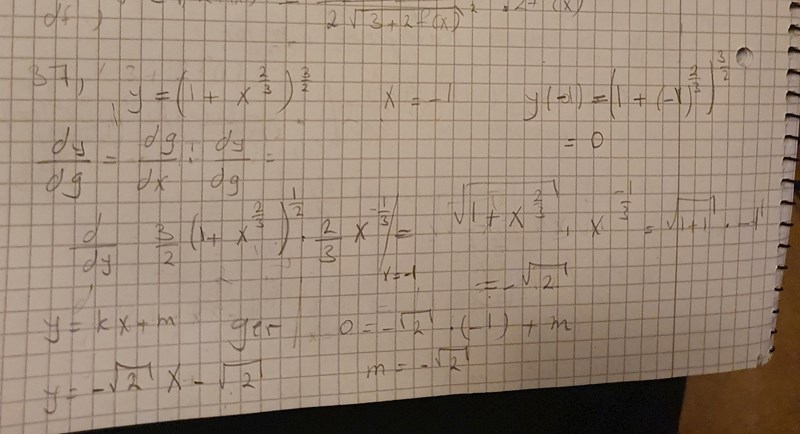 2√(3+2f(x))
37, y = (1 + x^(2/3))^(3/2) x = -1 y(-1) = (1 + (-1)^(2/3))^(3/2)
= 0
dy/dg = dg/dx : dy/dg =
d/dy 3/2 (1 + x^(2/3))^(1/2) · 2/3 x^(-1/3) |x=-1 = √(1 + x^(2/3)) · x^(-1/3) = √(1+1) · -1
= -√2
y = kx + m ger 0 = -√2 · (-1) + m
m = -√2
y = -√2 x - √2